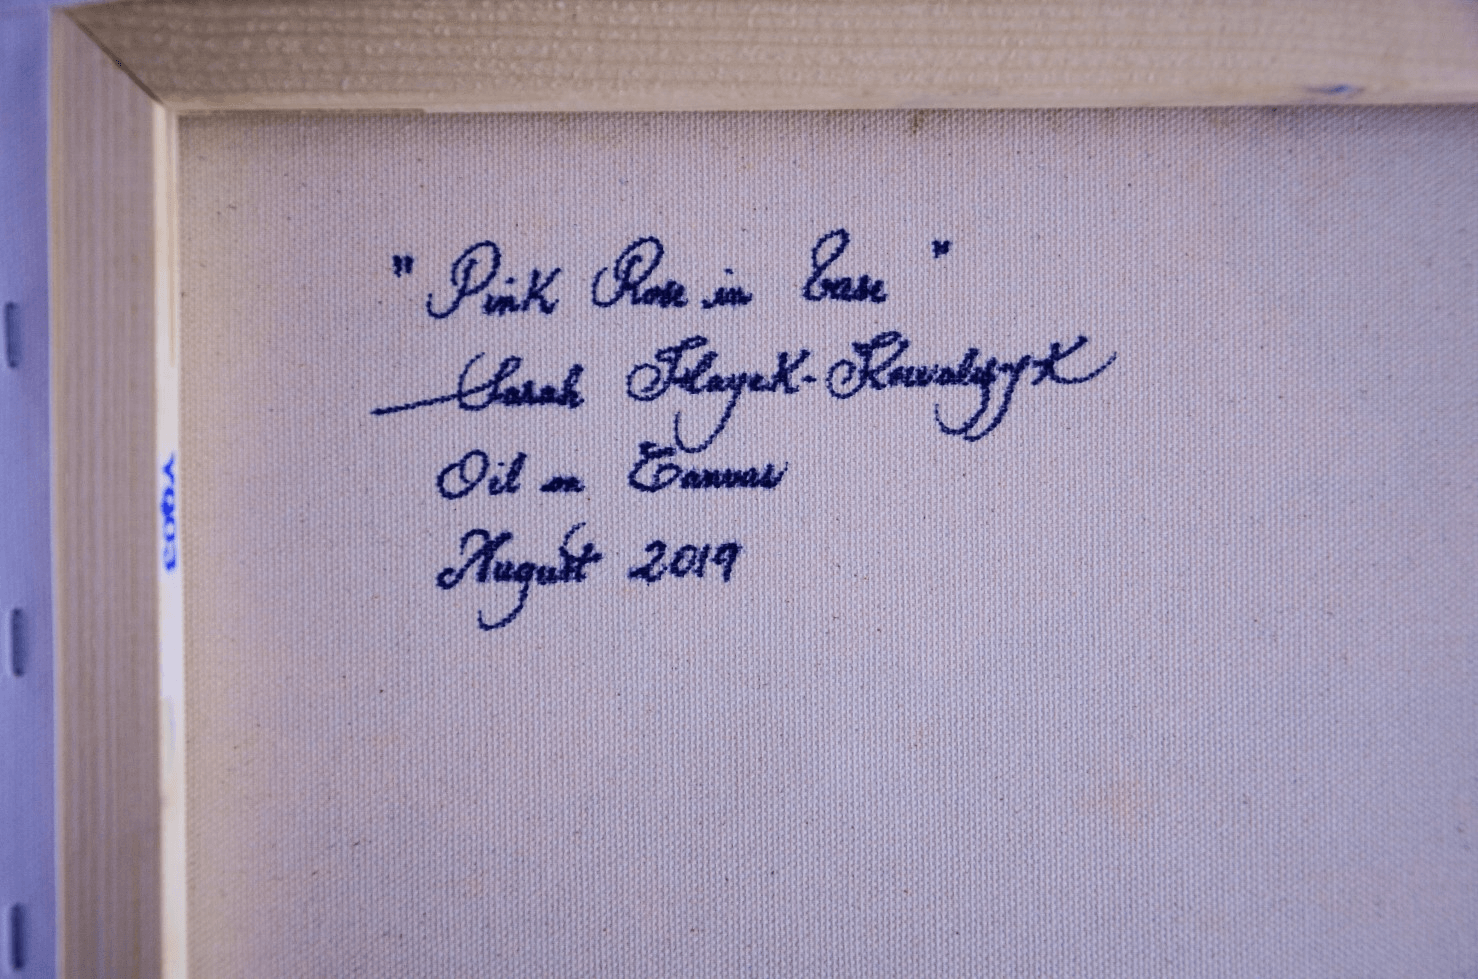 "Pink Rose in Ease"
Sarah Hayek-Kowalszyk
Oil on Canvas
August 2019